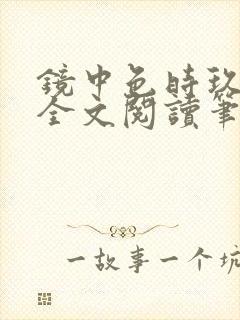 鏡中色時玖
全文閱讀筆
一故事一个坑